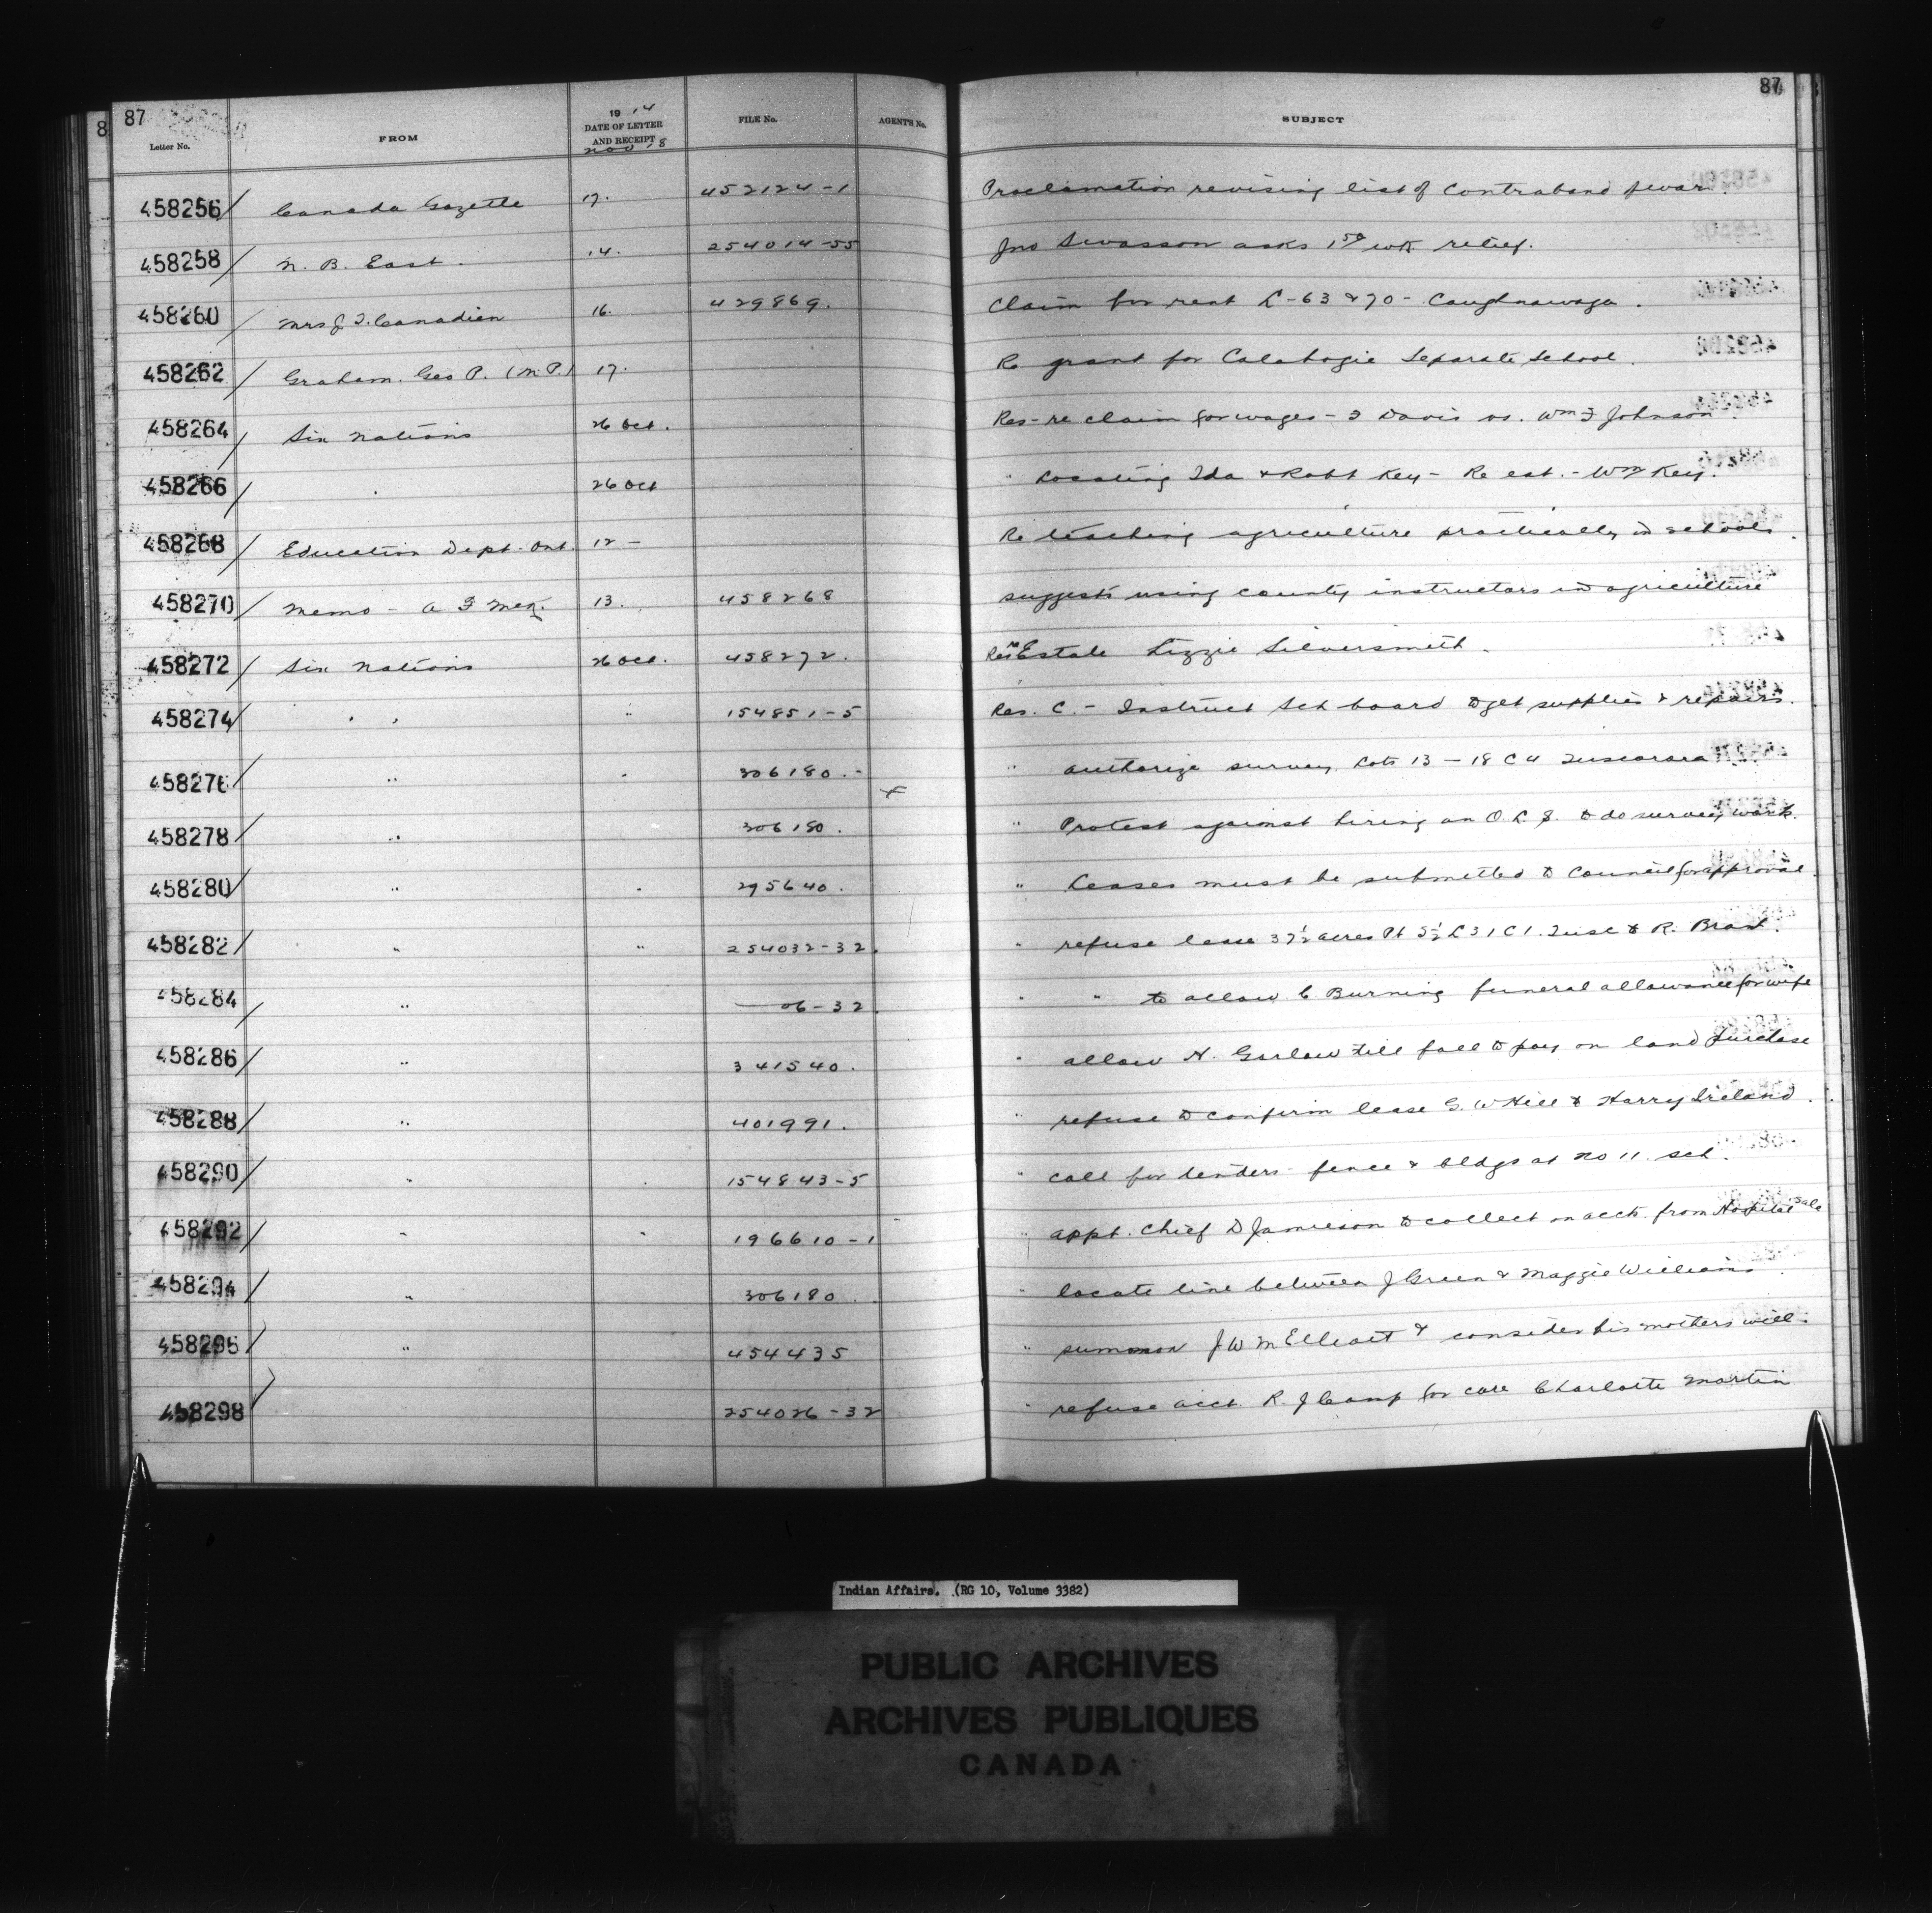 87 87
Letter No. FROM 1914 DATE OF LETTER AND RECEIPT FILE No. AGENT'S No. SUBJECT
Nov 18
458256 Canada Gazette 17. 452124-1 Proclamation revising list of contraband of war.
458258 N. B. East. 14. 254014-55 Jno Swasson asks 1 50 wk relief.
458260 Mrs J. T. Canadien 16. 429869. Claim for rent L-63 & 70 - Caughnawaga.
458262 Graham. Geo P. (M.P.) 17. Re grant for Calabogie Separate School.
458264 Six Nations 26 Oct. Res- re claim for wages - Davis vs. Wm F Johnson
458266 " 26 Oct " Locating Ida & Robt Key - Re est. - Wm Key.
458268 Education Dept. Ont. 12 - Re teaching agriculture practically in schools.
458270 Memo - A 13. 458268 suggests using county instructors in agriculture
458272 Six Nations 26 Oct. 458272. Res re Estate Lizzie Silversmith.
458274 " " " 154851-5 Res. C. - Instruct Sch board to get supplies & repairs.
458276 " " 306180. - " authorize survey Lots 13 - 18 C 4 Tuscarora
458278 " 306180. x " Protest against hiring an O. L. S. to do survey work.
458280 " " 295640. " Leases must be submitted to Council for approval.
458282 " " 254032-32. " refuse lease 37½ acres Pt S½ L 31 C 1. Tusc to R. Brant.
458284 " — 06-32. " " to allow C Burning funeral allowance for wife
458286 " 341540. " allow N. Garlow till fall to pay on land purchase
458288 " 401991. " refuse to confirm lease G. W Hill to Harry Ireland.
458290 " " 154843-5 " call for tenders - fence & bldgs at no 11. sch.
458292 " " 196610-1 " appt. Chief D Jamieson to collect on acct. from Hospital sale
458294 " 306180. " locate line between J Green & Maggie Williams.
458296 " 454435 " summon J W M Elliott & consider his mothers will.
458298 254026-32 " refuse acct. R. J Camp for care Charlotte Martin
Indian Affairs. (RG 10, Volume 3382)
PUBLIC ARCHIVES
ARCHIVES PUBLIQUES
CANADA